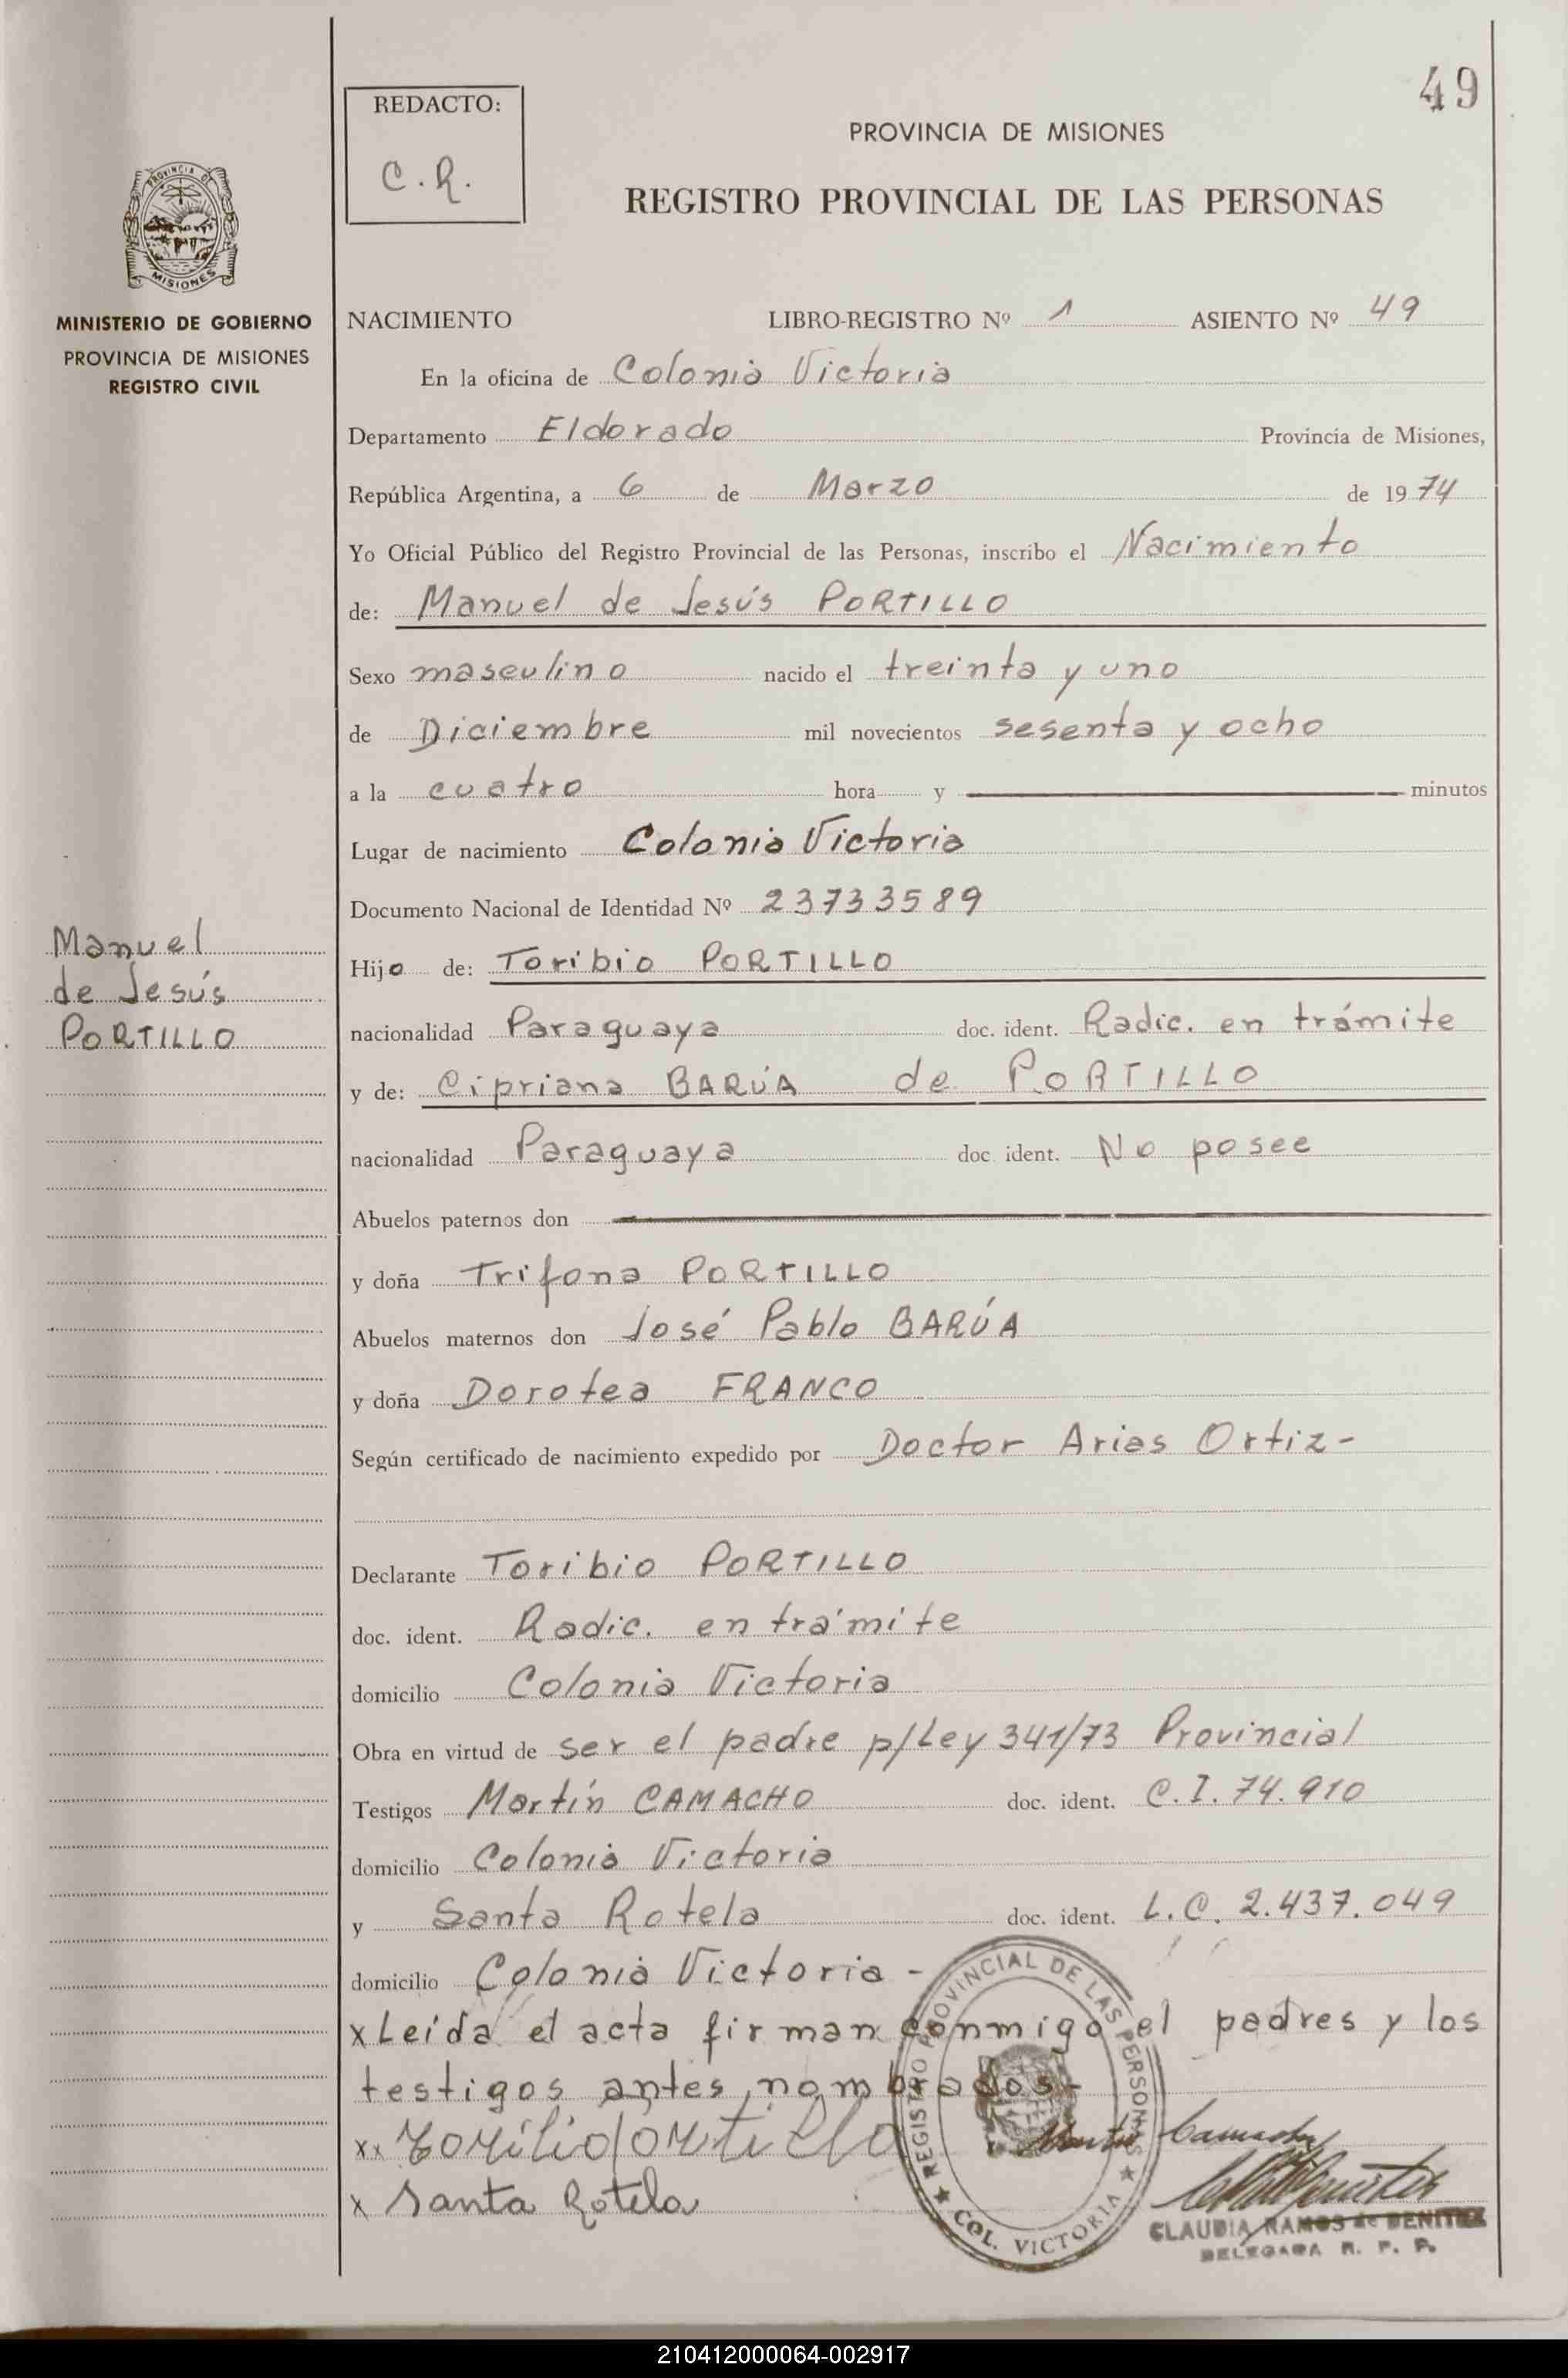 49
REDACTO:
C.R.
PROVINCIA DE MISIONES
REGISTRO PROVINCIAL DE LAS PERSONAS
PROVINCIA DE
MISIONES
MINISTERIO DE GOBIERNO
PROVINCIA DE MISIONES
REGISTRO CIVIL
NACIMIENTO LIBRO-REGISTRO Nº 1 ASIENTO Nº 49
En la oficina de Colonia Victoria
Departamento Eldorado Provincia de Misiones,
República Argentina, a 6 de Marzo de 1974
Yo Oficial Público del Registro Provincial de las Personas, inscribo el Nacimiento
de: Manuel de Jesús PORTILLO
Sexo masculino nacido el treinta y uno
de Diciembre mil novecientos sesenta y ocho
a la cuatro hora y minutos
Lugar de nacimiento Colonia Victoria
Documento Nacional de Identidad Nº 23733589
Manuel
de Jesús
PORTILLO
Hijo de: Toribio PORTILLO
nacionalidad Paraguaya doc. ident. Radic. en trámite
y de: Cipriana BARÚA de PORTILLO
nacionalidad Paraguaya doc. ident. No posee
Abuelos paternos don
y doña Trifona PORTILLO
Abuelos maternos don José Pablo BARÚA
y doña Dorotea FRANCO
Según certificado de nacimiento expedido por Doctor Arias Ortiz-
Declarante Toribio PORTILLO
doc. ident. Radic. en trámite
domicilio Colonia Victoria
Obra en virtud de ser el padre p/Ley 341/73 Provincial
Testigos Martín CAMACHO doc. ident. C.I. 74.910
domicilio Colonia Victoria
y Santa Rotela doc. ident. L.C. 2.437.049
domicilio Colonia Victoria -
x Leída el acta firman conmigo el padres y los
testigos antes nombrados-
xx Toribio Portillo Martin Camacho
x Santa Rotela
REGISTRO PROVINCIAL DE LAS PERSONAS
COL. VICTORIA
CLAUDIA RAMOS de BENITEZ
DELEGADA R. P. P.
210412000064-002917